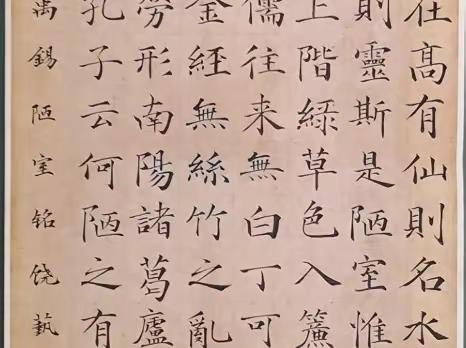 在高有仙則名水
則靈斯是陋室惟
上階緑草色入簾
儒往来無白丁可
金経無絲竹之亂
勞形南陽諸葛廬
孔子云何陋之有
禹錫陋室铭饶藝